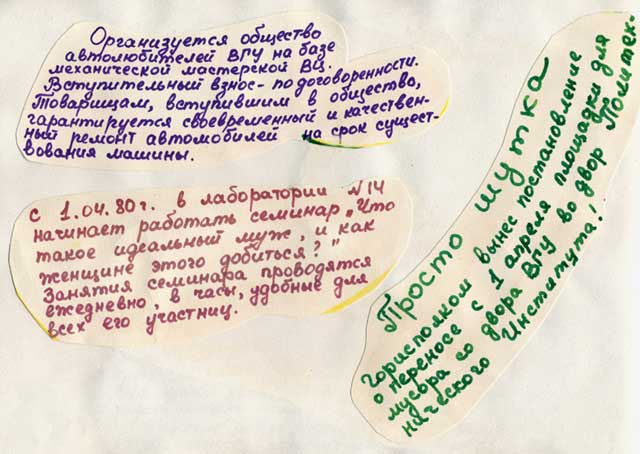 Организуется общество
автолюбителей ВГУ на базе
механической мастерской ВЦ.
Вступительный взнос - по договоренности.
Товарищам, вступившим в общество,
гарантируется своевременный и качествен-
ный ремонт автомобилей на срок сущест-
вования машины.
с 1.04.80г. в лаборатории №14
начинает работать семинар „Что
такое идеальный муж, и как
женщине этого добиться?"
Занятия семинара проводятся
ежедневно, в часы, удобные для
всех его участниц.
Просто шутка
Горисполком вынес постановление
о переносе с 1 апреля площадки для
мусора со двора ВГУ во двор Политех-
нического Института!